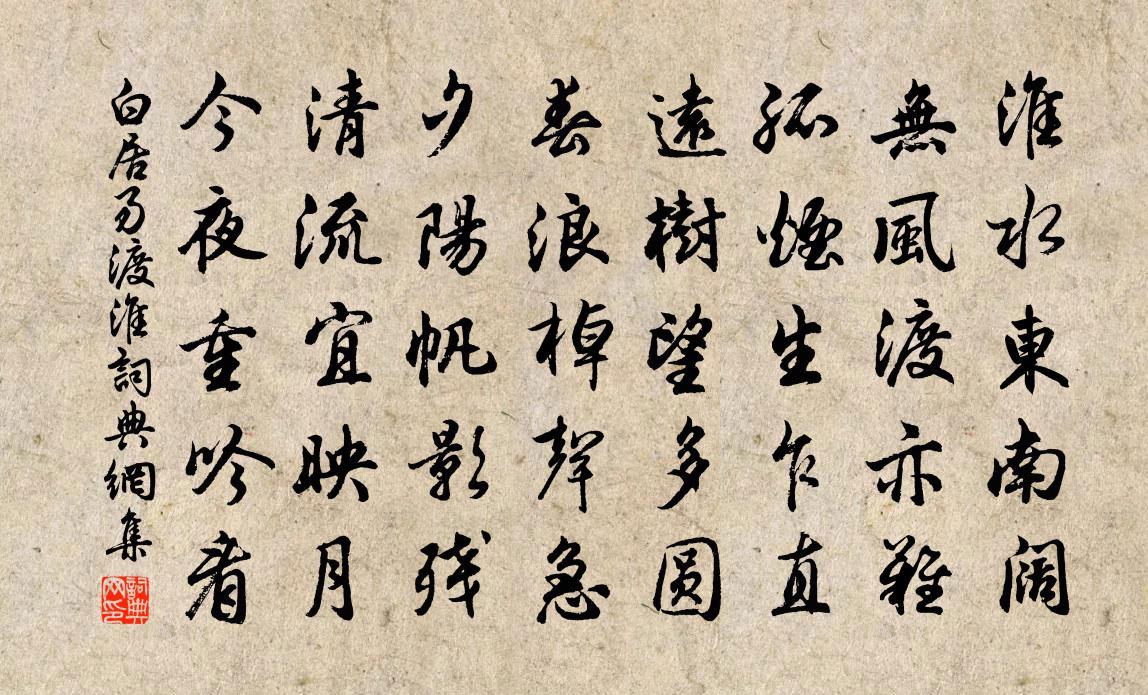 淮水東南闊
無風渡亦難
孤煙生乍直
遠樹望多圓
春浪棹聲急
夕陽帆影残
清流宜映月
今夜重吟看
白居易渡淮詞典網集
詞典
网印